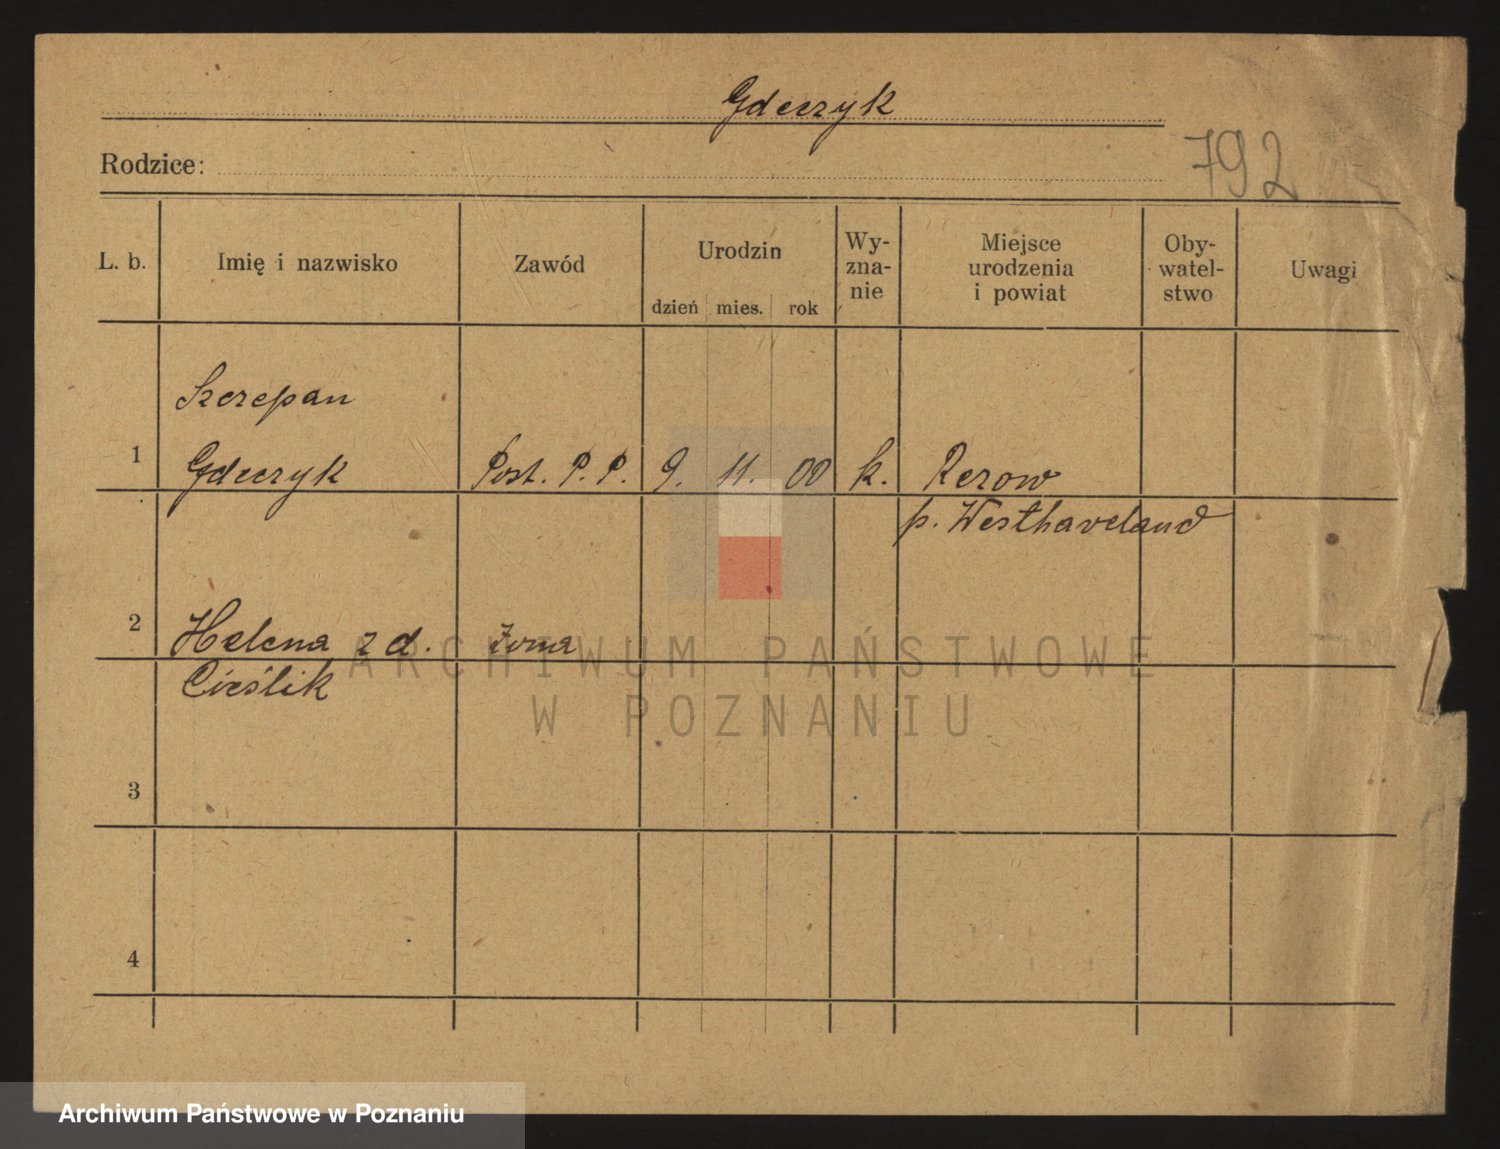 Gdeczyk
792
Rodzice:
L. b. Imię i nazwisko Zawód Urodzin dzień mies. rok Wy-zna-nie Miejsce urodzenia i powiat Oby-watel-stwo Uwagi
Szczepan
1 Gdeczyk Post. P. P. 9. 11. 00 k. Rezow
p. Westhaveland
2 Helena z d. żona
Cieślik
3
4
ARCHIWUM PAŃSTWOWE
W POZNANIU
Archiwum Państwowe w Poznaniu